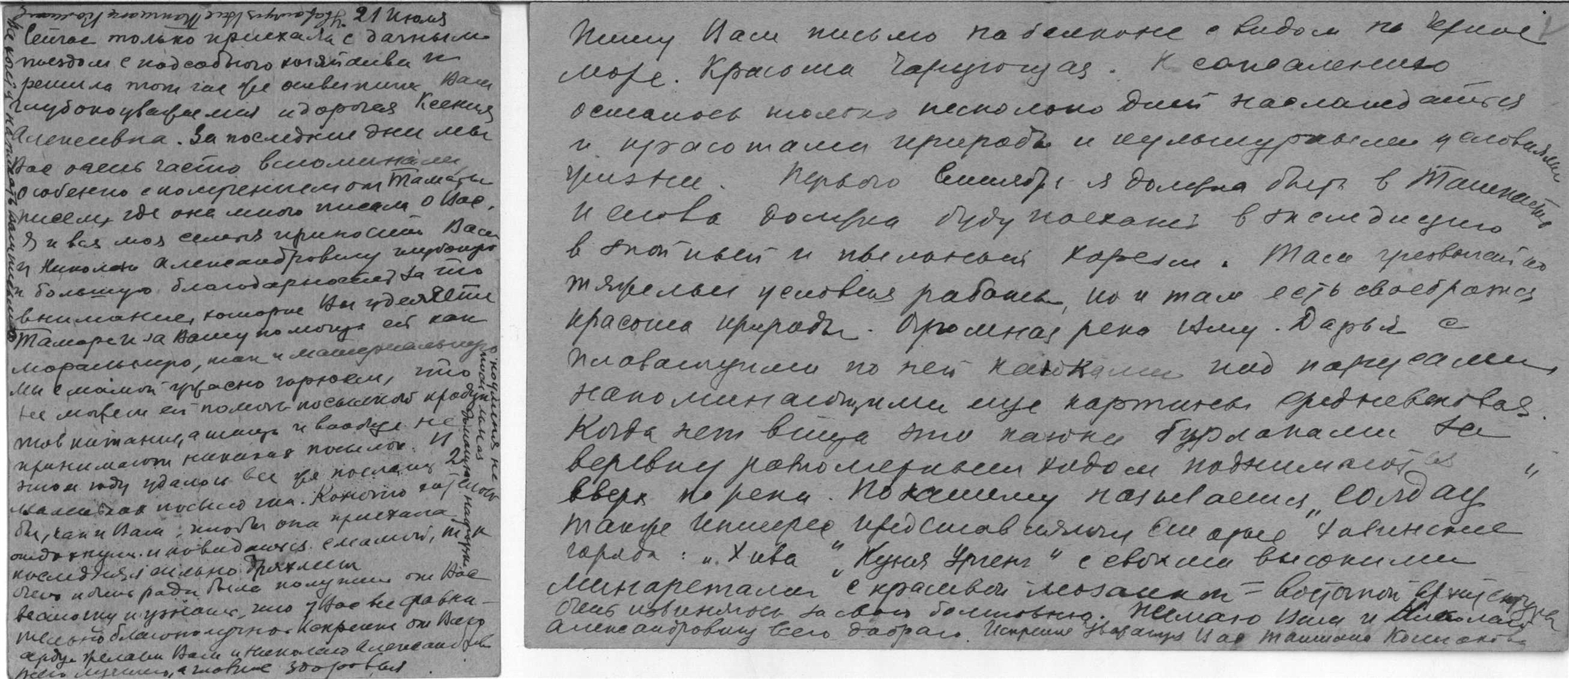 21 июля
Сейчас только приехала с дачным
поездом с подсобного хозяйства и
решила тот час же ответить Вам
глубокоуважаемая и дорогая Ксения
Алексеевна. За последние дни мы
Вас очень часто вспоминали
особенно с получением от Тамары
писем, где она много писала о Вас.
Я и вся моя семья приносит Вам
и Николаю Александровичу глубокую
и большую благодарность за то
внимание, которое Вы уделяете
Тамаре и за Вашу помощь ей как
моральную, так и материальную
Мы с мамой ужасно горюем, что
не можем ей помочь посылкой продук
тов питания, а и вообще не
принимают никаких посылок. И
этом году удалось все же послать 2
маленькие посылочки. Конечно
бы, как и Вам, чтобы она приехала
отдохнуть и повидаться с мамой, т.к.
последняя сильно дряхлеет
Очень и очень рады были получить от Вас
весточку и узнать, что у Вас все сравни-
тельно благополучно. Искренне от всего
сердца желаем Вам и Николаю Александров
всего лучшего, а главное здоровья.
Пишу Вам письмо на балконе с видом на Черное
море. Красота чарующая. К сожалению
осталось только несколько дней наслаждаться
и красотами природы и культурными условиями
жизни. Первого Сентября я должна быть в Ташкенте
и снова должна буду поехать в экспедицию
в знойный и пыльный Хорезм. Там чрезвычайно
тяжелые условия работы, но и там есть своеобразная
красота природы. Огромная река Аму-Дарья с
плавающими по ней каюками под парусами,
напоминающими еще картины средневековья.
Когда нет ветра эти каюки бурлаками за
веревку равномерным ходом поднимаются
вверх по реке. По нашему называется „солдау"
также интерес представляют старые хивинские
города: „Хива" „Куня Ургенч" с своими высокими
минаретами с красивой мозаикой - восточной архитектура
Очень извиняюсь за свою болтовню. Желаю Вам и Николаю
Александровичу всего доброго. Искренне уважающая Вас Татьяна